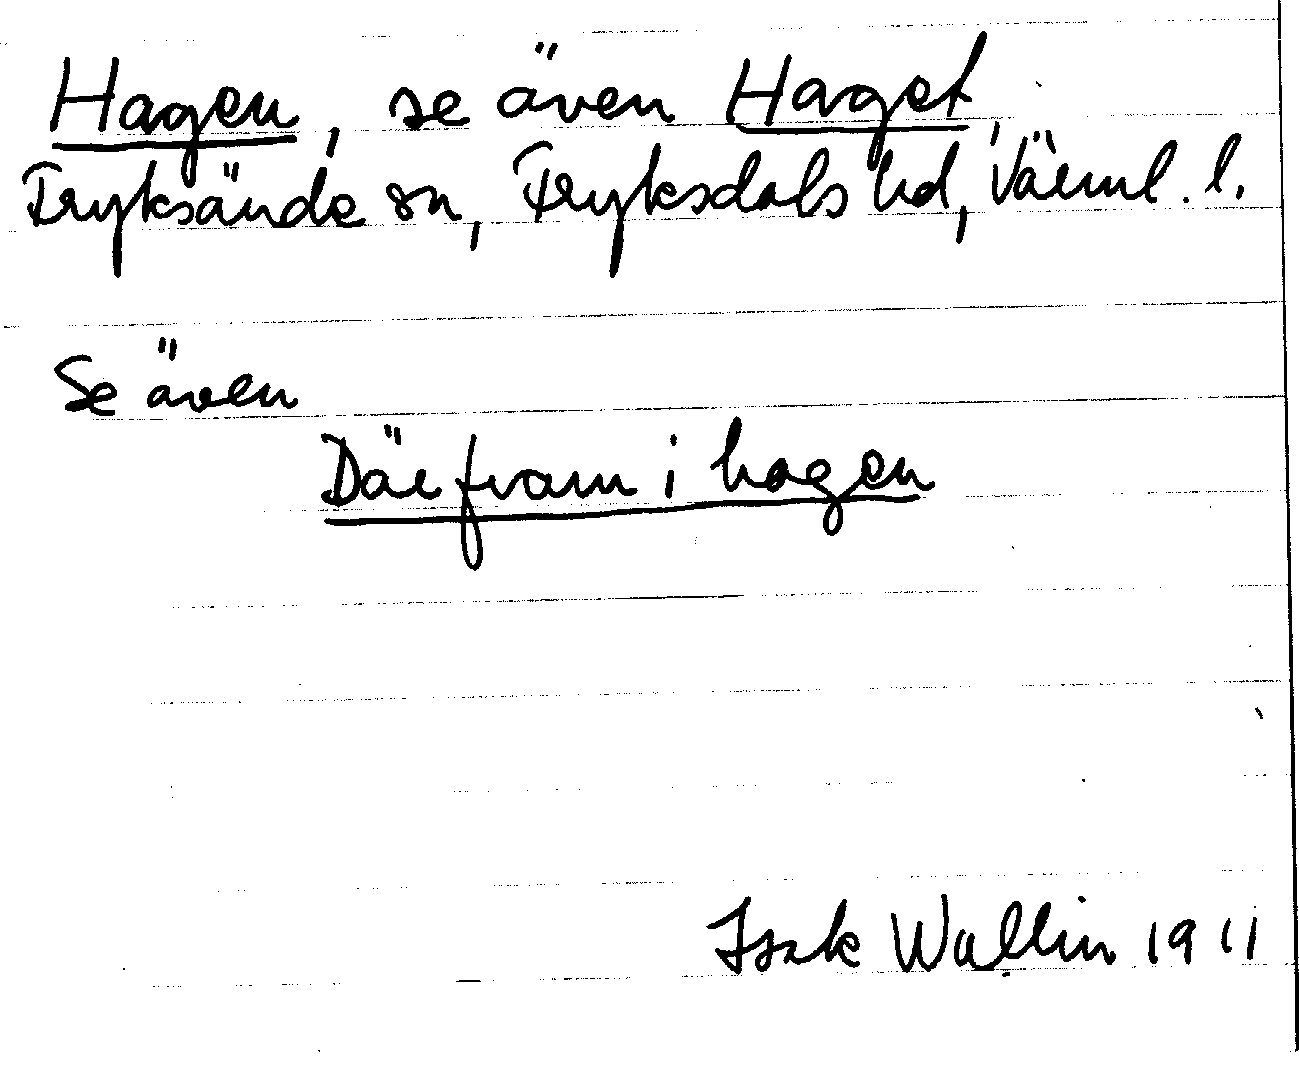 Hagen, se även Haget,
Fryksände sn, Fryksdals hd, Värml. l.
Se även
Där fram i hagen
Isak Wallin 1911